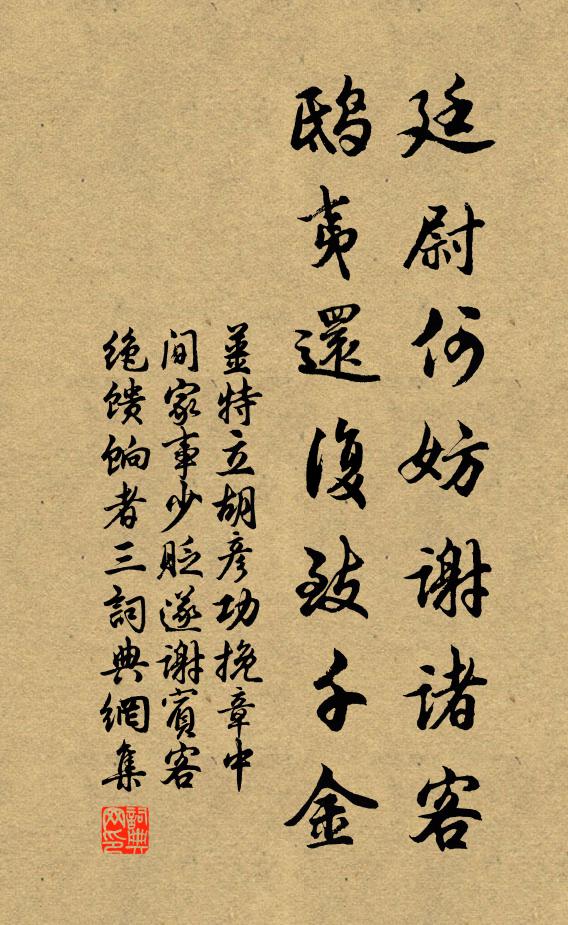 廷尉何妨谢诸客
鸱夷還復致千金
姜特立胡彦功挽章中
间家事少贬遂谢宾客
绝馈饷者三詞典網集
詞典网印